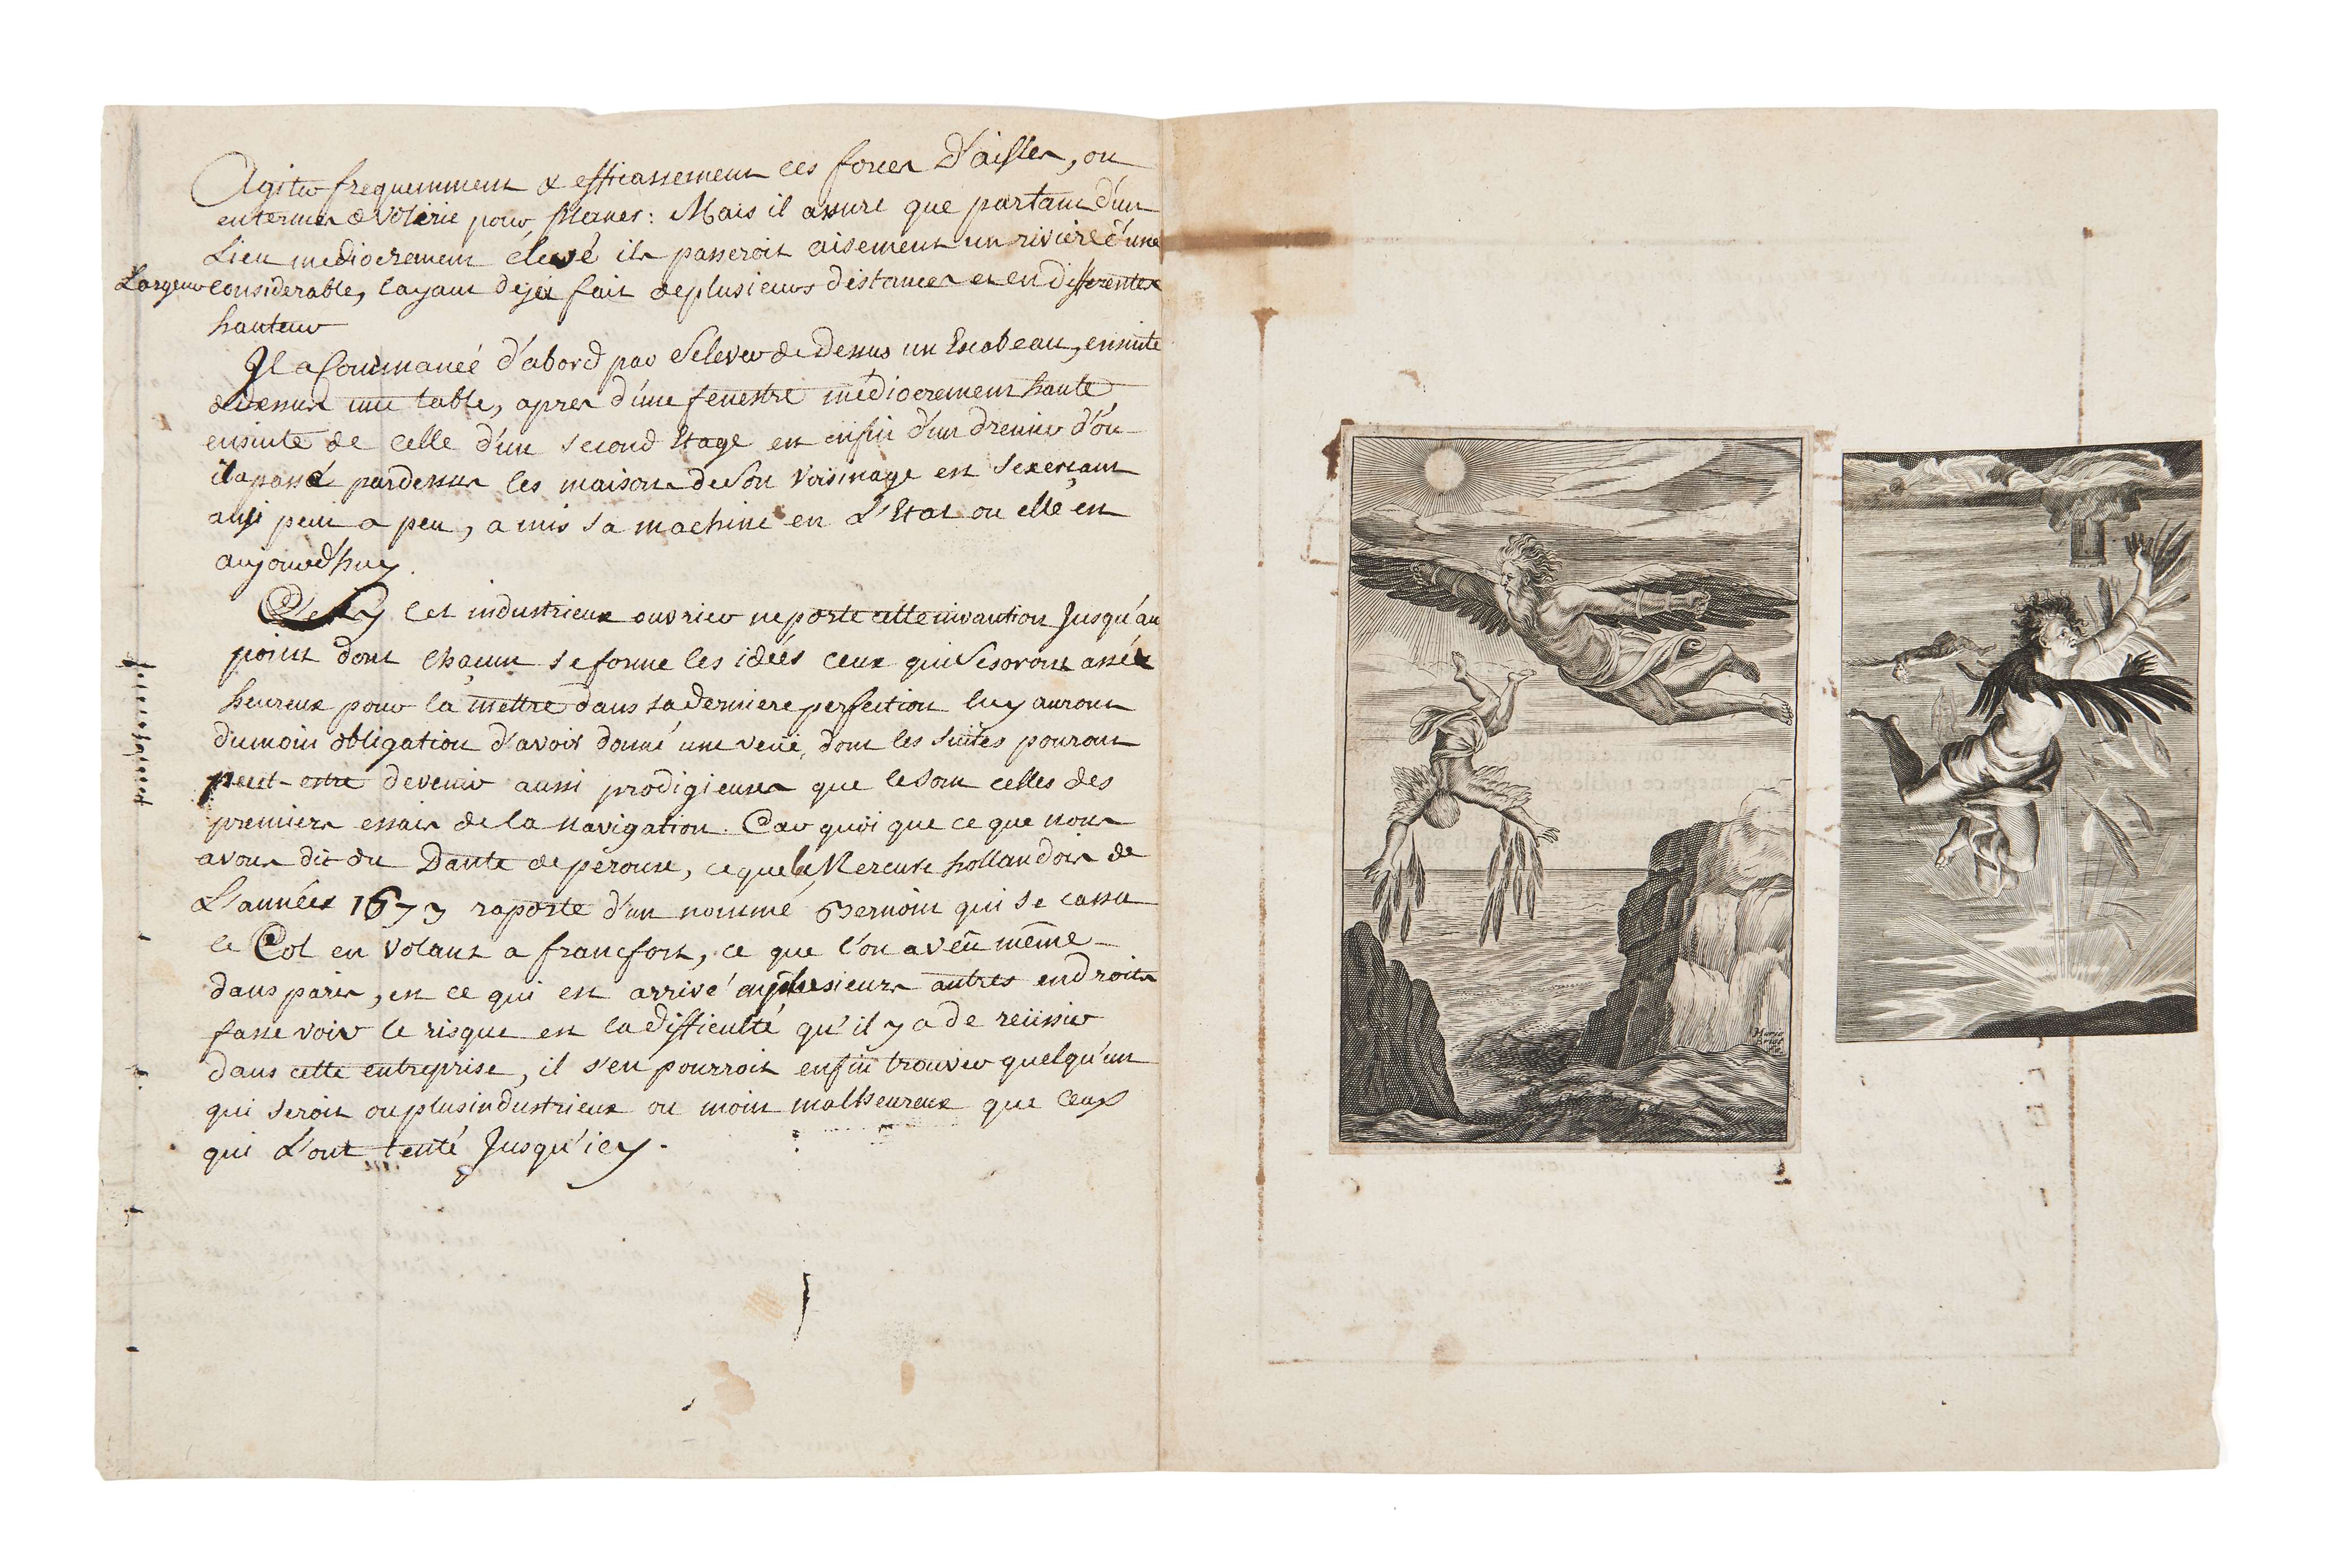 Agiter frequemment & efficassement ces sorces d'aisles, ou
en termes de volerie pour planer: Mais il assure que partant d'un
Lieu mediocrement élevé il passeroit aisement un riviere d'une
Largeur considerable, layant deja fait de plusieurs distances et en differentes
hauteur
Il a Commancé d'abord par S'elever de dessus un Escabeau, ensuite
de dessus une table, apres d'une fenestre mediocrement haute
ensuite de celle d'un second Etage et enfin d'un Grenier d'ou
il a passé par dessus les maisons de Son voisinage et s'exerçant
ausi peu a peu, a mis sa machine en L'Etat ou elle est
aujourd'huy.
Que sy cet industrieux ouvrier ne porte cette invantion Jusqu'au
point dont chacun se forme les idées ceux qui Seront assés
heureux pour la mettre dans sa derniere perfection luy auront
du moin obligation d'avoir donné une veüe, dont les suites pouront
peut-estre devenir aussi prodigieuses que le sont celles des
premiers essais de la navigation. Car quoi que ce que nous
avons dit du Dante de perouse, ce que le Mercure hollandois de
L'années 1673 raporte d'un nommé Bernoin qui se cassa
le Col en volant a francfort, ce que l'on a veü même
dans paris, et ce qui est arrivé en plusieurs autres endroits
fasse voir le risque et la difficulté qu'il y a de reüssir
dans cette entreprise, il s'en pourroit enfin trouver quelqu'un
qui seroit ou plus industrieux ou moin malheureux que ceux
qui L'ont tenté Jusqu'icy.